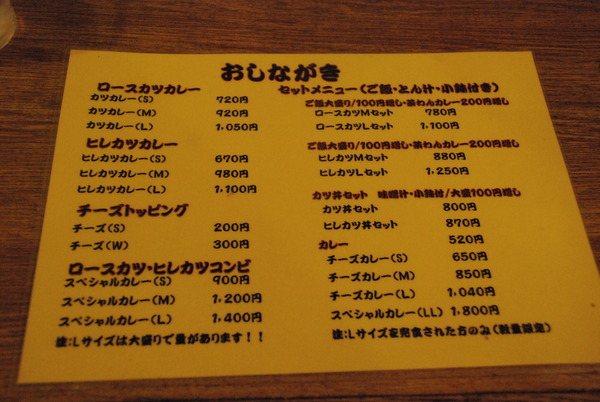 おしながき
ロースカツカレー
カツカレー(S) 720円
カツカレー(M) 920円
カツカレー(L) 1,050円
ヒレカツカレー
ヒレカツカレー(S) 670円
ヒレカツカレー(M) 980円
ヒレカツカレー(L) 1,100円
チーズトッピング
チーズ(S) 200円
チーズ(W) 300円
ロースカツ・ヒレカツコンビ
スペシャルカレー(S) 900円
スペシャルカレー(M) 1,200円
スペシャルカレー(L) 1,400円
注:Lサイズは大盛りで量があります!!
セットメニュー(ご飯・とん汁・小鉢付き)
ご飯大盛り/100円増し・茶わんカレー200円増し
ロースカツMセット 780円
ロースカツLセット 1,100円
ご飯大盛り/100円増し・茶わんカレー200円増し
ヒレカツMセット 880円
ヒレカツLセット 1,250円
カツ丼セット 味噌汁・小鉢付/大盛100円増し
カツ丼セット 800円
ヒレカツ丼セット 870円
カレー 520円
チーズカレー(S) 650円
チーズカレー(M) 850円
チーズカレー(L) 1,040円
スペシャルカレー(LL) 1,800円
注:Lサイズを完食された方のみ(数量限定)